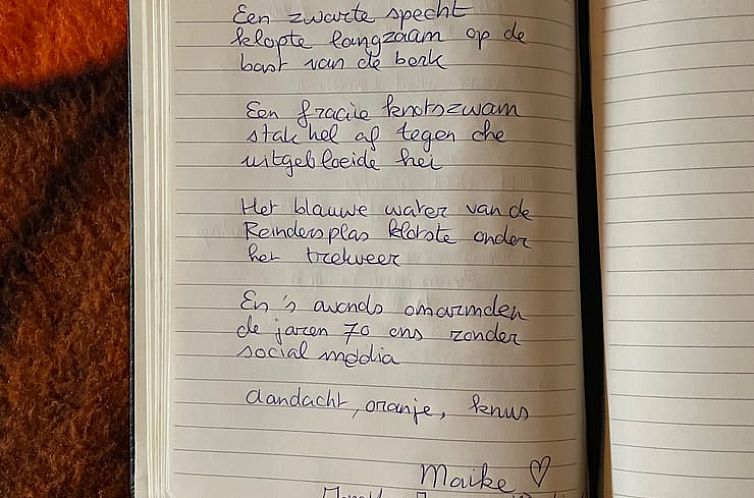 Een zwarte specht
klopte langzaam op de
bast van de berk
Een fraaie knotszwam
stak hel af tegen de
uitgebloeide hei
Het blauwe water van de
Reindersplas klotste onder
het trekveer
En 's avonds omarmden
de jaren 70 ons zonder
social media
aandacht, oranje, knus
Maike ♡